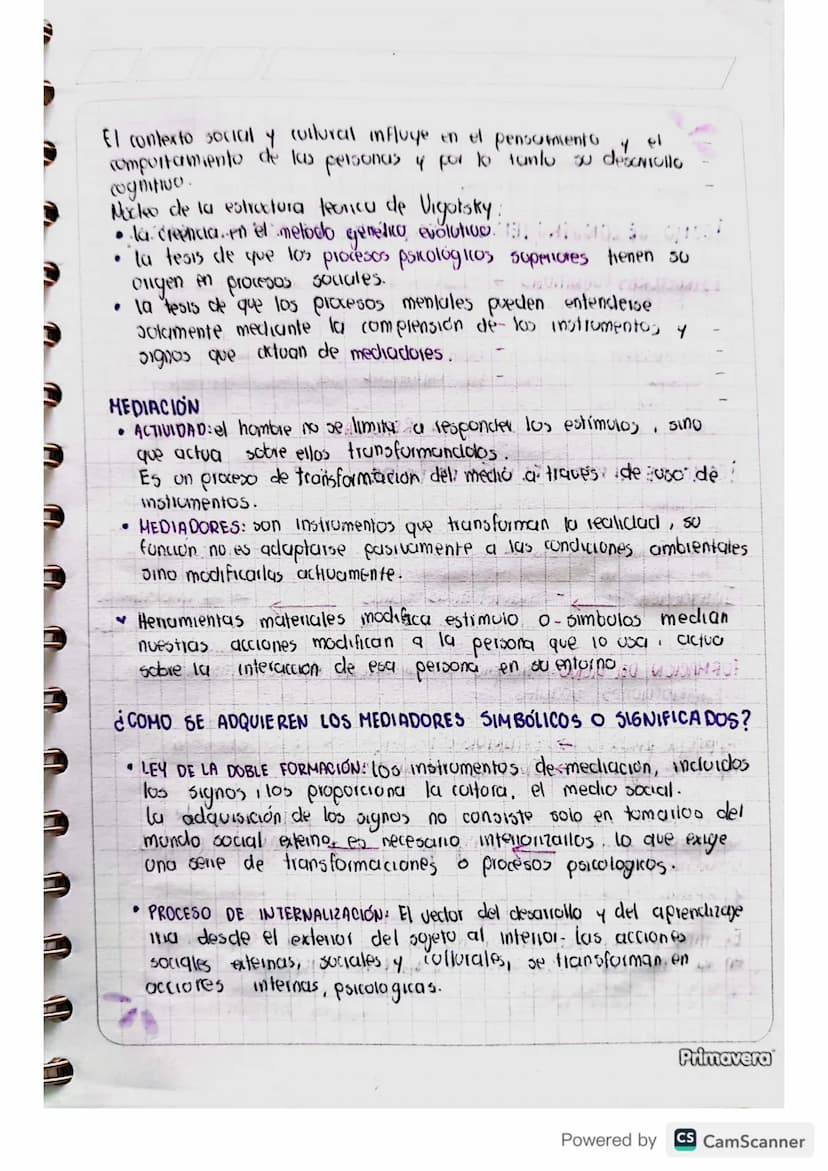 El contexto social y cultural influye en el pensamiento y el
comportamiento de las personas y por lo tanto su desarrollo
cognitivo.
Núcleo de la estructura teorica de Vigotsky:
• la creencia en el metodo genético evolutivo.
• la tesis de que los procesos psicológicos superiores tienen su
origen en procesos sociales.
• la tesis de que los procesos mentales pueden entenderse
solamente mediante la comprensión de los instrumentos y
signos que actuan de mediadores.
MEDIACIÓN
• ACTIVIDAD: el hombre no se limita a responder los estímulos, sino
que actua sobre ellos transformandolos.
Es un proceso de transformación del medio a través de uso de
instrumentos.
• MEDIADORES: son instrumentos que transforman la realidad, su
función no es adaptarse pasivamente a las condiciones ambientales
sino modificarlas activamente.
Herramientas materiales modifica estimulo o simbolos median
nuestras acciones modifican a la persona que lo usa, actua
sobre la interaccion de esa persona en su entorno
¿COMO SE ADQUIEREN LOS MEDIADORES SIMBÓLICOS O SIGNIFICADOS?
• LEY DE LA DOBLE FORMACIÓN: los instrumentos de mediación, incluidos
los signos, los proporciona la cultura, el medio social.
la adquisición de los signos no consiste solo en tomarlos del
mundo social externo, es necesario interiorizarlos, lo que exige
una serie de transformaciones o procesos psicologicos.
• PROCESO DE INTERNALIZACIÓN: El vector del desarrollo y del aprendizaje
iria desde el exterior del sujeto al interior- las acciones
sociales externas, sociales y culturales, se transforman en
acciones internas, psicologicas.
Primavera
Powered by CS CamScanner